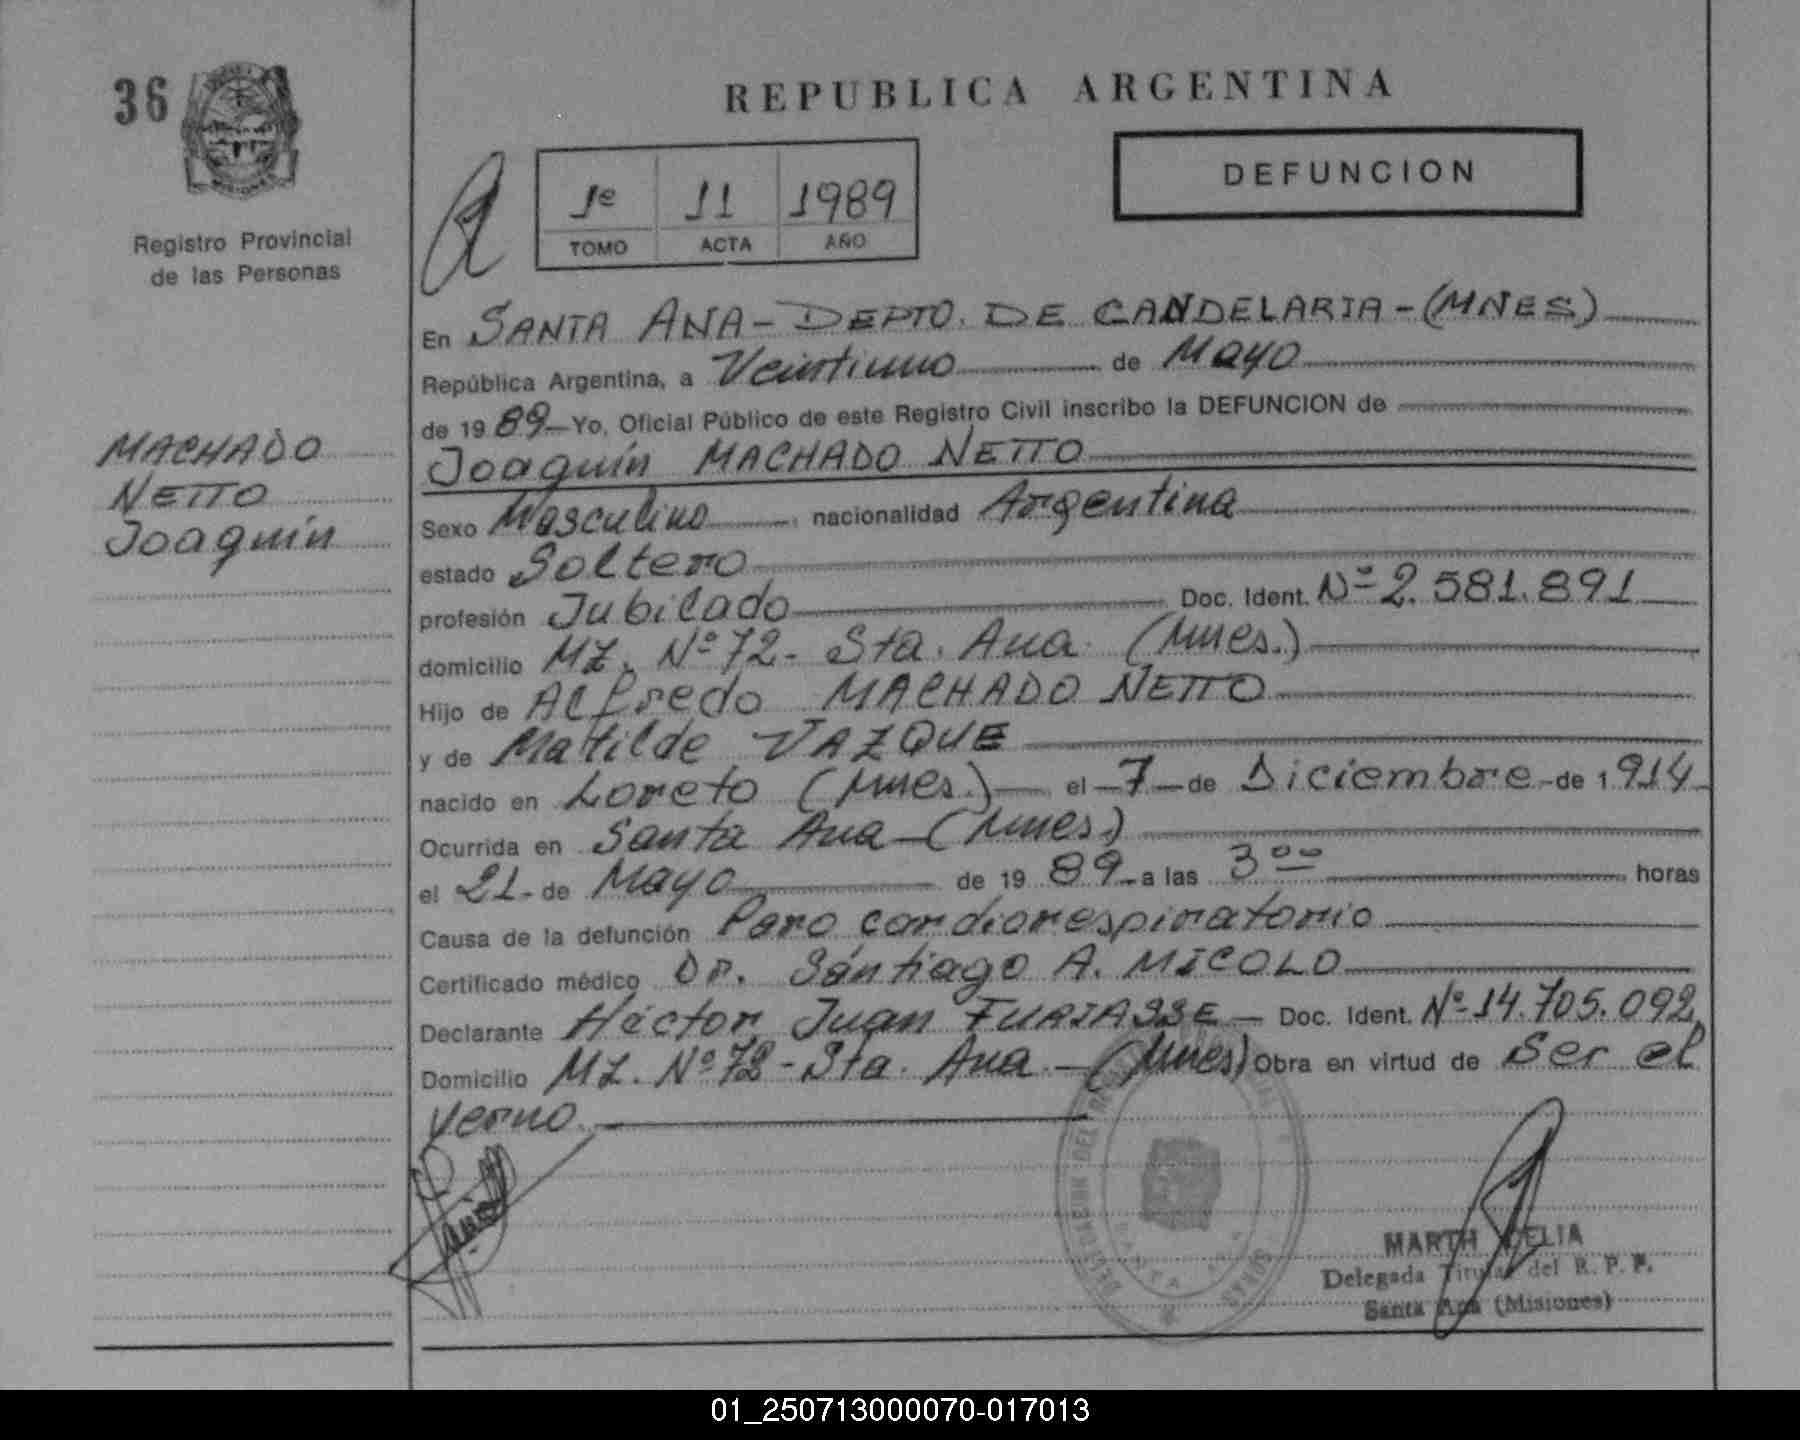 36
MISIONES
Registro Provincial
de las Personas
MACHADO
NETTO
Joaquín
REPUBLICA ARGENTINA
1e 11 1989
TOMO ACTA AÑO
DEFUNCION
En SANTA ANA - DEPTO. DE CANDELARIA - (MNES)
República Argentina, a Veintiuno de Mayo
de 1989 - Yo, Oficial Público de este Registro Civil inscribo la DEFUNCION de
Joaquín MACHADO NETTO
Sexo Masculino, nacionalidad Argentina
estado Soltero
profesión Jubilado Doc. Ident. Nº 2.581.891
domicilio MZ. Nº 72 - Sta. Ana (Mnes.)
Hijo de Alfredo MACHADO NETTO
y de Matilde VAZQUE
nacido en Loreto (Mnes.) el 7 de Diciembre de 1914
Ocurrida en Santa Ana - (Mnes.)
el 21 - de Mayo de 1989 - a las 3 00 horas
Causa de la defunción Paro cardiorespiratorio
Certificado médico Dr. Santiago A. MICOLO
Declarante Héctor Juan FURIASSE - Doc. Ident. Nº 14.705.092
Domicilio MZ. Nº 72 - Sta. Ana - (Mnes) Obra en virtud de Ser el
yerno.
DELEGACION DEL
SANTA ANA
Delegada Titular del R. P. P.
Santa Ana (Misiones)
01_250713000070-017013